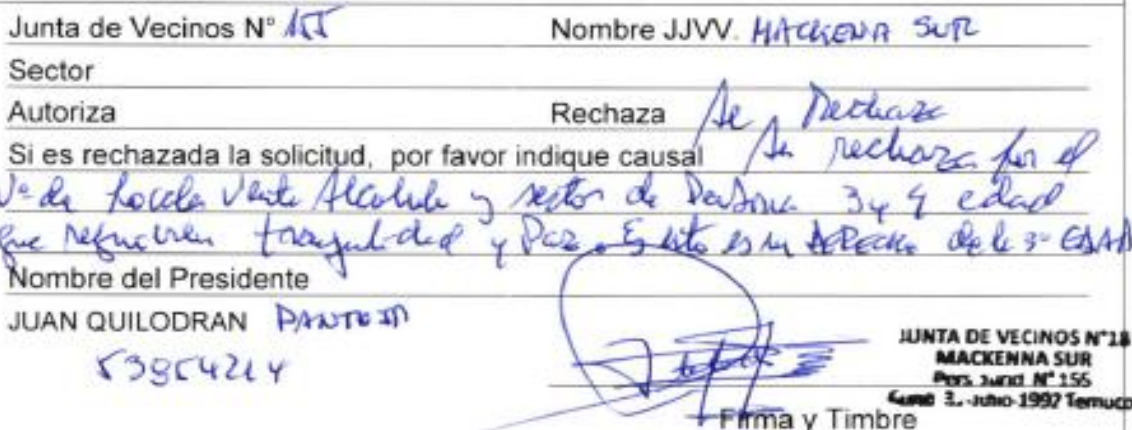 Junta de Vecinos N° 155 Nombre JJVV. MACKENA SUR
Sector
Autoriza Rechaza Se Rechaza
Si es rechazada la solicitud, por favor indique causal Se rechaza por el
N° de Locales Venta Alcohole y sector de 3 y 4 edad
que requieren tranquilidad y Paz. esto es un DERECHO de la 3° EDAD
Nombre del Presidente
JUAN QUILODRAN PANTOJA
53954214
JUNTA DE VECINOS N°18
MACKENNA SUR
Pers. Jurid N° 155
3.-Julio-1992 Temuco
Firma y Timbre